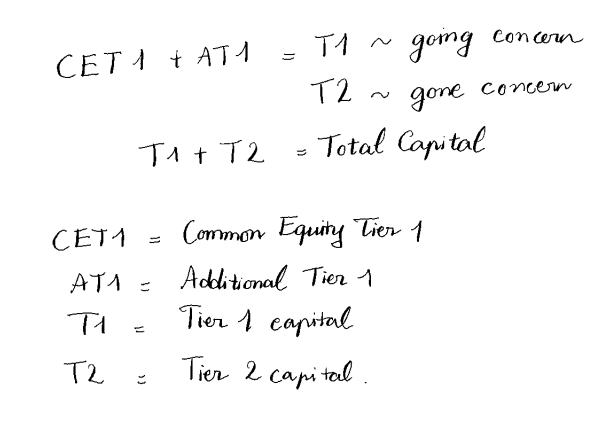 CET1 + AT1 = T1 ~ going concern
T2 ~ gone concern
T1 + T2 = Total Capital
CET1 = Common Equity Tier 1
AT1 = Additional Tier 1
T1 = Tier 1 capital
T2 = Tier 2 capital.